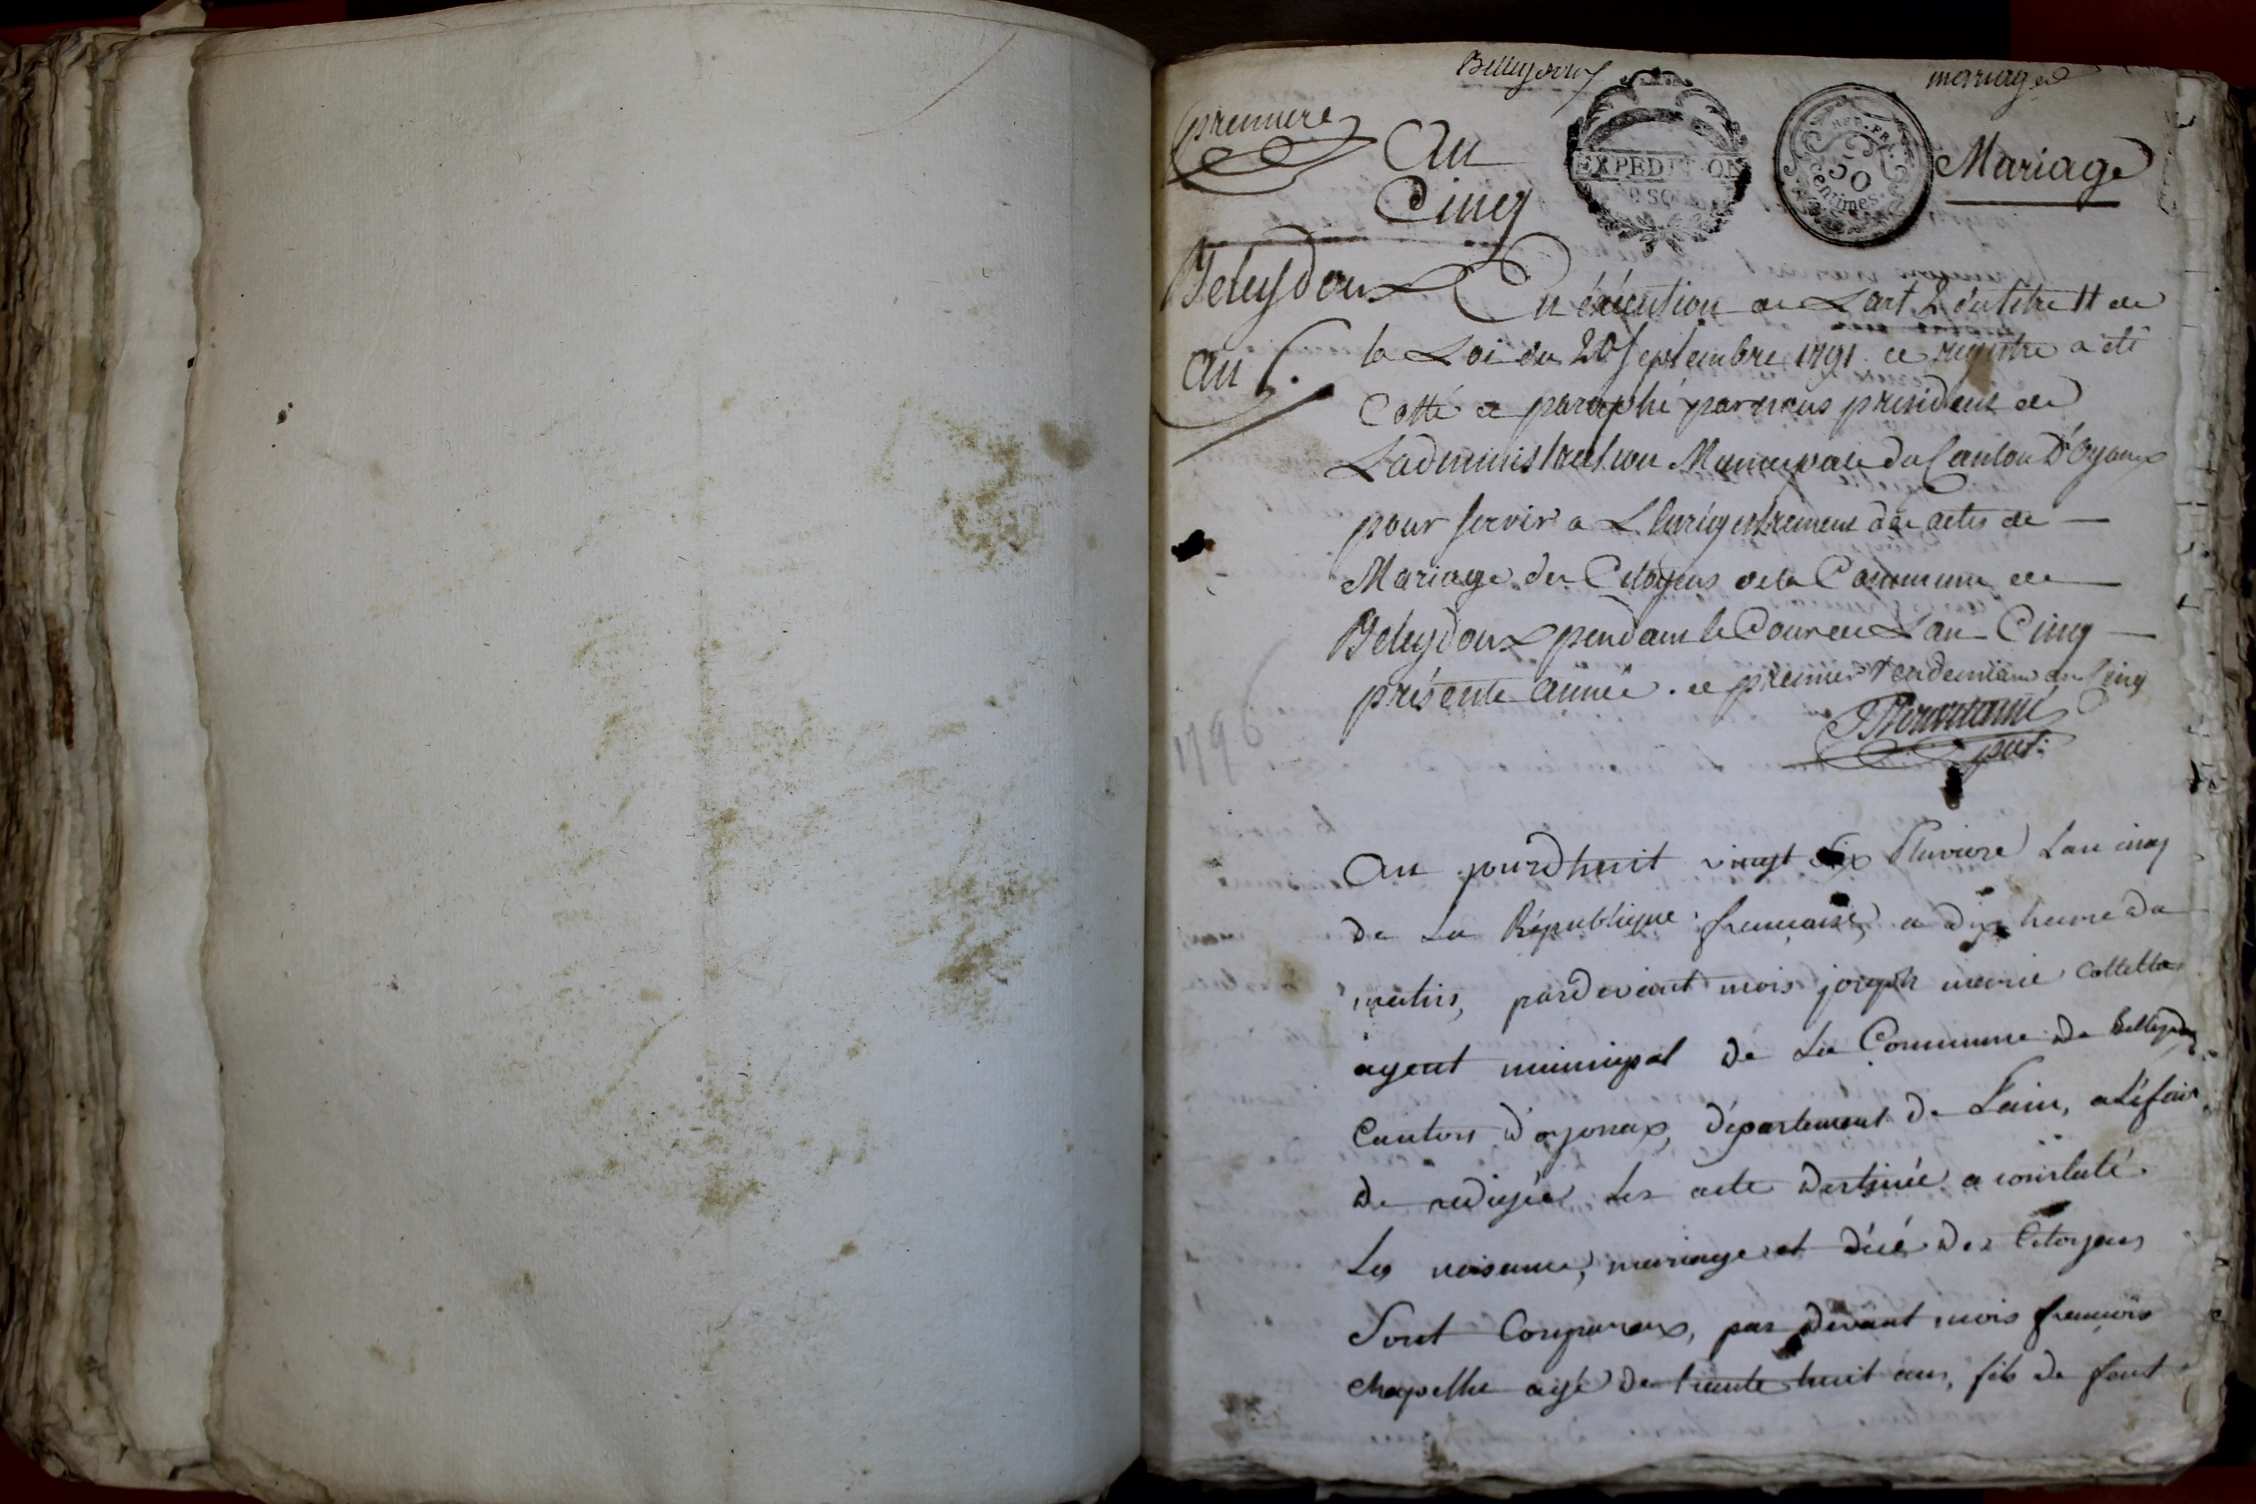 Belleydoux
mariages
premiere
An
Cinq
EXPEDITION
REP. FR.
50
centimes
Mariage
Beleydoux
an 5.
En éxécution de L'art 2 du titre II de
la Loi du 20 Septembre 1791. ce registre a été
Cotté et paraphé par nous président de
L'administration Municipale du Canton D'Oyonax
pour servir a L'Enrigestrement des actes de
Mariage des Citoyens de la Commune de
Beleydoux pendant le Cour de L'an Cinq
présente année. ce premier Vendemiaire an Cinq
1796
pdt.
Au jourdhuit vingt six Pluviose Lan cinq
de La République francaise, a dix heure da
matin, pardevant mois joseph marie Cottetta
agent municipal de La Commune de Belleydoux
Canton d'oyonax, département de Lain, a Léfait
de redigée Les acte destinée a constaté
Les naisance, mariage et décé des Citoyens
Sont Comparus, par devant mois francois
chapelle agé de trante huit ans, fils de feut